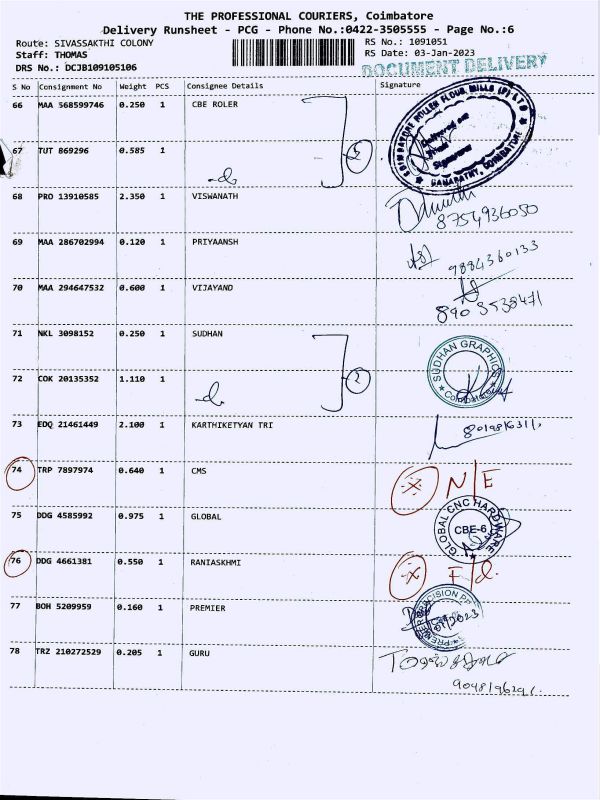 THE PROFESSIONAL COURIERS, Coimbatore
Delivery Runsheet - PCG - Phone No.:0422-3505555 - Page No.:6
Route: SIVASSAKTHI COLONY RS No.: 1091051
Staff: THOMAS RS Date: 03-Jan-2023
DRS No.: DCJB109105106 DOCUMENT DELIVERY
S No Consignment No Weight PCS Consignee Details Signature
66 MAA 568599746 0.250 1 CBE ROLER
COIMBATORE ROLLER FLOUR MILLS (P) LTD
GANAPATHY, COIMBATORE
67 TUT 869296 0.585 1
68 PRO 13910585 2.350 1 VISWANATH
8754936050
69 MAA 286702994 0.120 1 PRIYAANSH
9884360133
70 MAA 294647532 0.600 1 VIJAYAND
8903538471
71 NKL 3098152 0.250 1 SUDHAN
SUDHAN GRAPHICS
Coimbatore
72 COK 20135352 1.110 1 2
73 EDQ 21461449 2.100 1 KARTHIKETYAN TRI
74 TRP 7897974 0.640 1 CMS N/E
75 DDG 4585992 0.975 1 GLOBAL
GLOBAL CNC HARDWARE
CBE-6
76 DDG 4661381 0.550 1 RANIASKHMI
77 BOH 5209959 0.160 1 PREMIER
78 TRZ 210272529 0.205 1 GURU